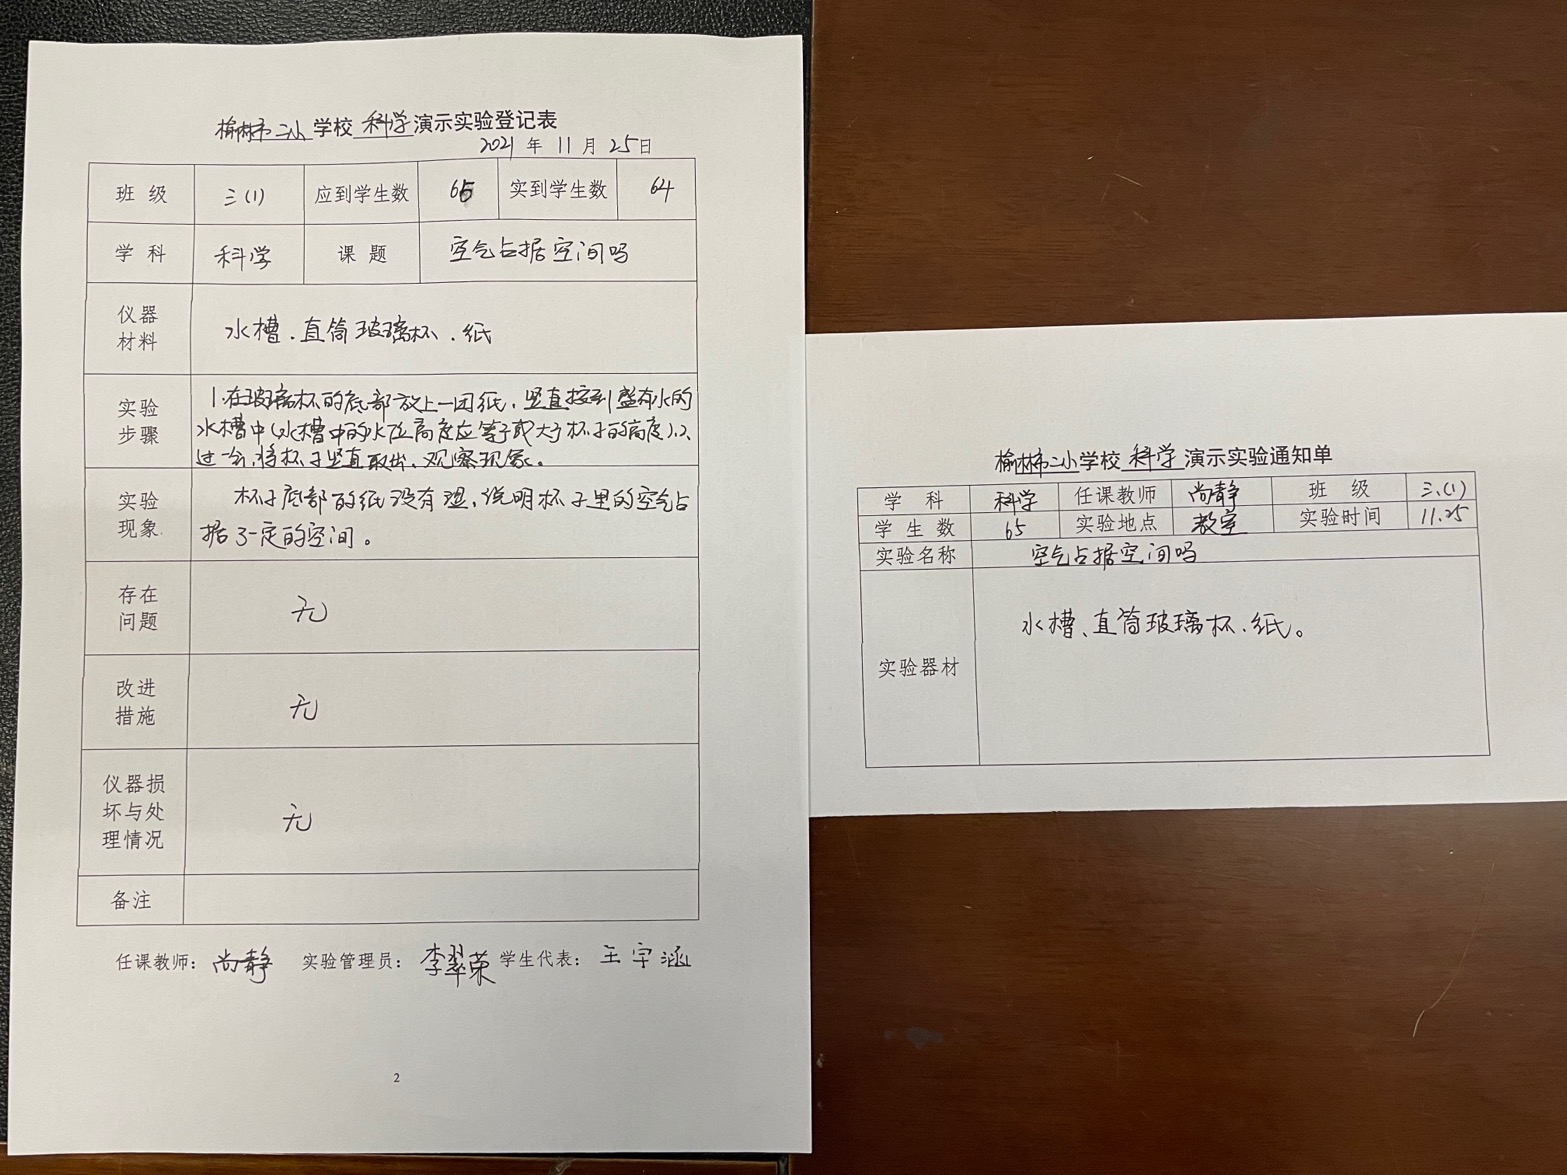 榆林市二小学校科学演示实验登记表
2021年11月25日
班级 三(1) 应到学生数 65 实到学生数 64
学科 科学 课题 空气占据空间吗
仪器材料 水槽.直筒玻璃杯.纸
实验步骤 1.在玻璃杯的底部放上一团纸,竖直按到盛有水的
水槽中(水槽中的水位高度应等于或大于杯子的高度).2、
过一会,将杯子竖直取出,观察现象。
实验现象 杯子底部的纸没有湿,说明杯子里的空气占
据了一定的空间。
存在问题 无
改进措施 无
仪器损坏与处理情况 无
备注
任课教师:尚静 实验管理员:李翠荣 学生代表:王宇涵
2
榆林市二小学校科学演示实验通知单
学科 科学 任课教师 尚静 班级 三.(1)
学生数 65 实验地点 教室 实验时间 11.25
实验名称 空气占据空间吗
实验器材 水槽、直筒玻璃杯.纸。